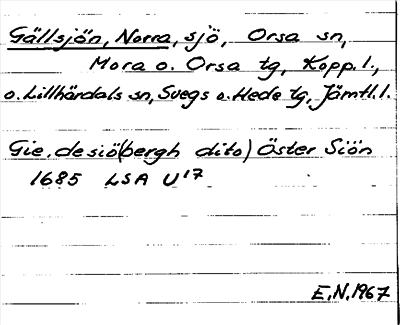 Gällsjön, Norra, sjö, Orsa sn,
Mora o. Orsa tg, Kopp. l.,
o. Lillhärdals sn, Svegs o. Hede tg, Jämtl. l.
Gie. de siö (bergh dito) Öster Siön
1685 LSA U17
E.N. 1967